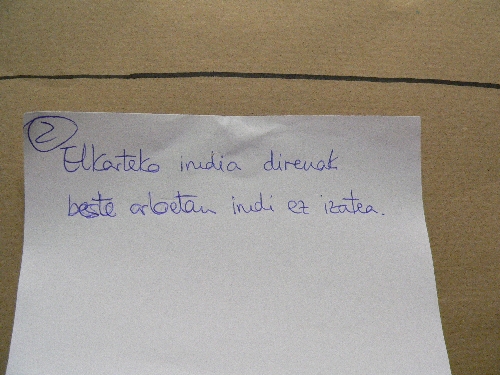 2
Elkarteko irudia direnak
beste arloetan irudi ez izatea.